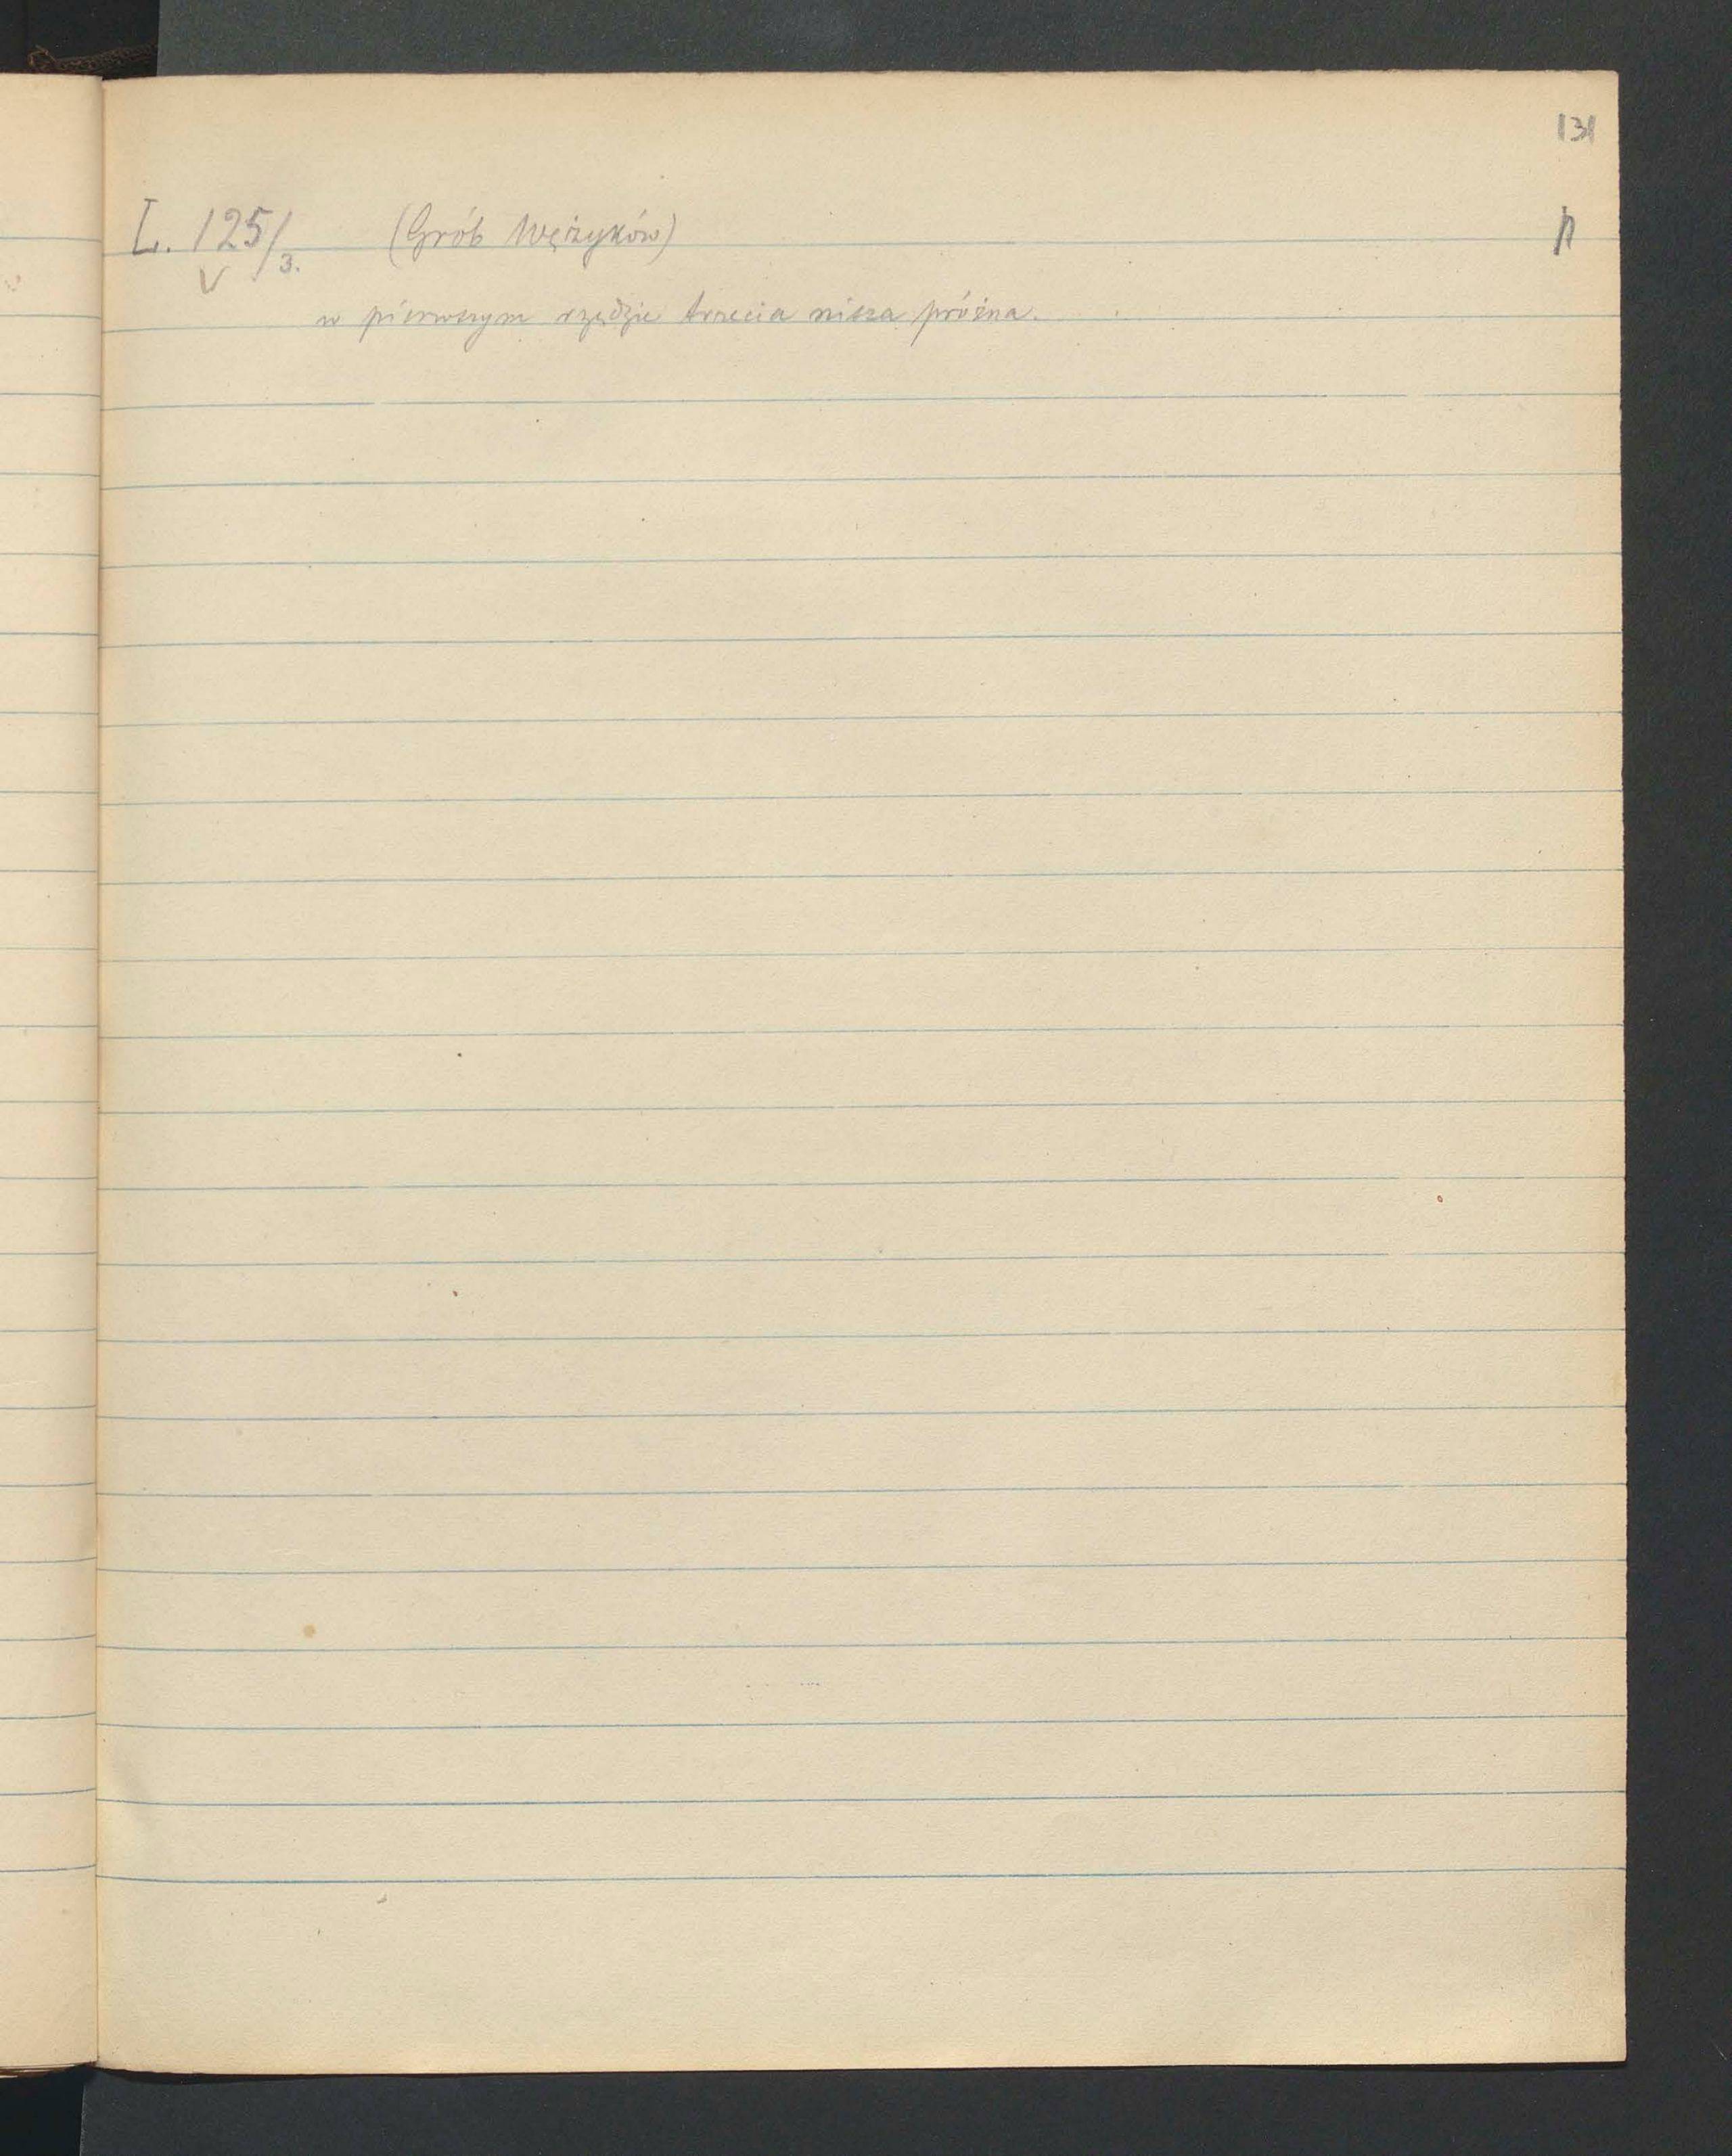 131
L. 125/3. (Grób Wężyków) p
V
w pierwszym rzędzie trzecia nisza próżna.